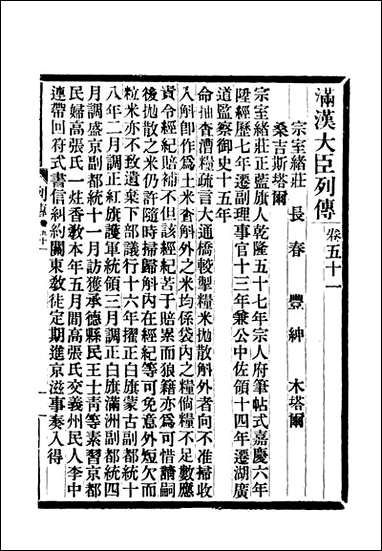 滿漢大臣列傳 卷五十一
宗室緒莊 長春 豐紳 木塔爾
桑吉斯塔爾
宗室緒莊正藍旗人乾隆五十七年宗人府筆帖式嘉慶六年
陞經歷七年遷副理事官十三年兼公中佐領十四年遷湖廣
道監察御史十五年
命抽查漕糧疏言大通橋較掣糧米拋散斛外者向不准掃收
入斛卽作爲土米斛外之米均係袋內之糧倘糧不足數應
責令經紀賠補不但該經紀苦于賠累而狼藉亦爲可惜請嗣
後拋散之米仍許隨時掃歸斛內在經紀等可免意外短欠而
粒米亦不致遺棄下部議行十六年擢正白旗蒙古副都統十
八年二月調正紅旗護軍統領三月調正白旗滿洲副都統四
月調盛京副都統十一月訪獲承德縣民王士靑等素習京都
民婦高張氏一炷香敎本年五月間高張氏交義州民人李中
連帶回符式書信糾約關東敎徒定期進京滋事奏入得
列傳 卷五十一 一